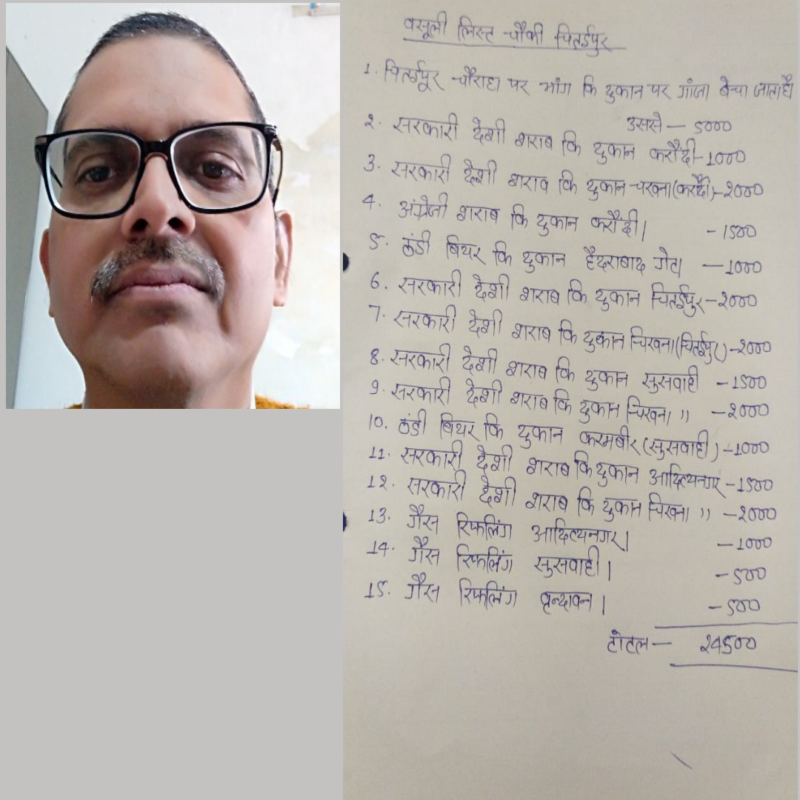 वसूली लिस्ट चौकी चितईपुर
1. चितईपूर चौराहा पर भांग कि दुकान पर गांजा बेचा जाता है
उससे — 5000
2. सरकारी देशी शराब कि दुकान करौंदी - 1000
3. सरकारी देशी शराब कि दुकान चखना (करौंदी) - 2000
4. अंग्रेजी शराब कि दुकान करौंदी। - 1500
5. ठंडी बियर कि दुकान हैदराबाद गेट। — 1000
6. सरकारी देशी शराब कि दुकान चितईपुर - 2000
7. सरकारी देशी शराब कि दुकान चिखना (चितईपुर) - 2000
8. सरकारी देशी शराब कि दुकान सुसवाही - 1500
9. सरकारी देशी शराब कि दुकान चिखना " - 2000
10. ठंडी बियर कि दुकान करमबीर (सुसवाही) - 1000
11. सरकारी देशी शराब कि दुकान आदित्यनगर - 1500
12. सरकारी देशी शराब कि दुकान चिखना " - 2000
13. गैस रिफलिंग आदित्यनगर। - 1000
14. गैस रिफलिंग सुसवाही। - 500
15. गैस रिफलिंग वृन्दावन। - 500
टोटल — 24500